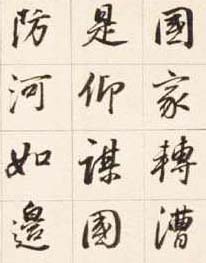 國家轉漕
是仰謀國
防河如邊